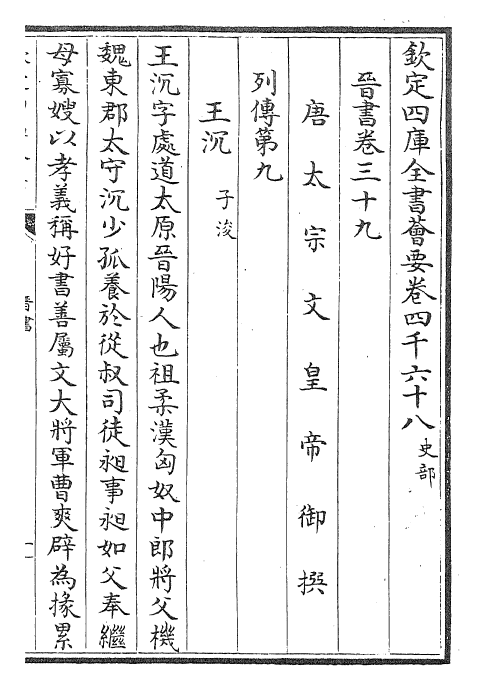 欽定四庫全書薈要卷四千六十八 史部
晉書卷三十九
唐太宗文皇帝御撰
列傳第九
王沉 子浚
王沉字處道太原晉陽人也祖柔漢匈奴中郎將父機
魏東郡太守沉少孤養於從叔司徒昶事昶如父奉繼
母寡嫂以孝義稱好書善屬文大將軍曹爽辟為掾累
晉書